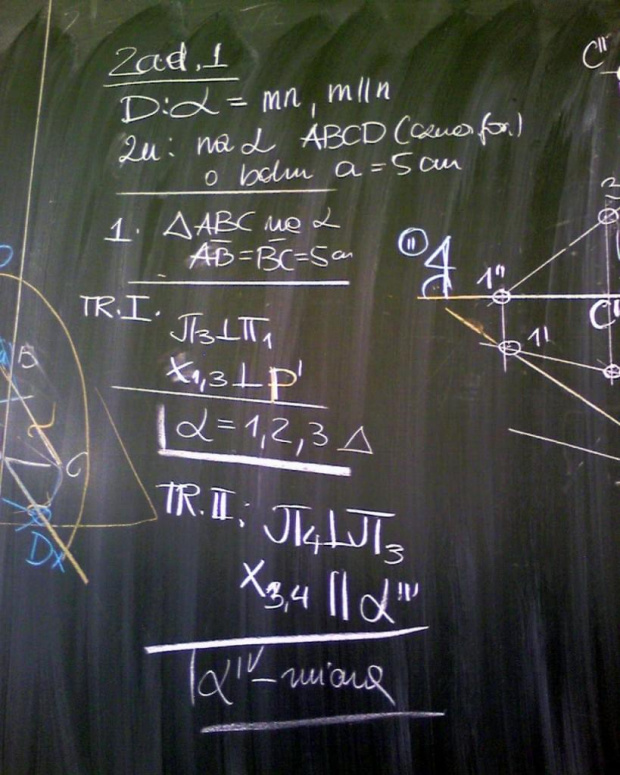 Zad.1
D: α = mn, m∥n
Zn: na α ABCD (czworfor)
o boku a = 5 cm
1. △ABC na α
AB = BC = 5cm
TR.I. π3⊥π1
X1,3⊥p'
α = 1,2,3 △
TR.II: π4⊥π3
X3,4 ∥ α'''
α'ⱽ – miara
C''
1''
1'
C''
B
C
Dx